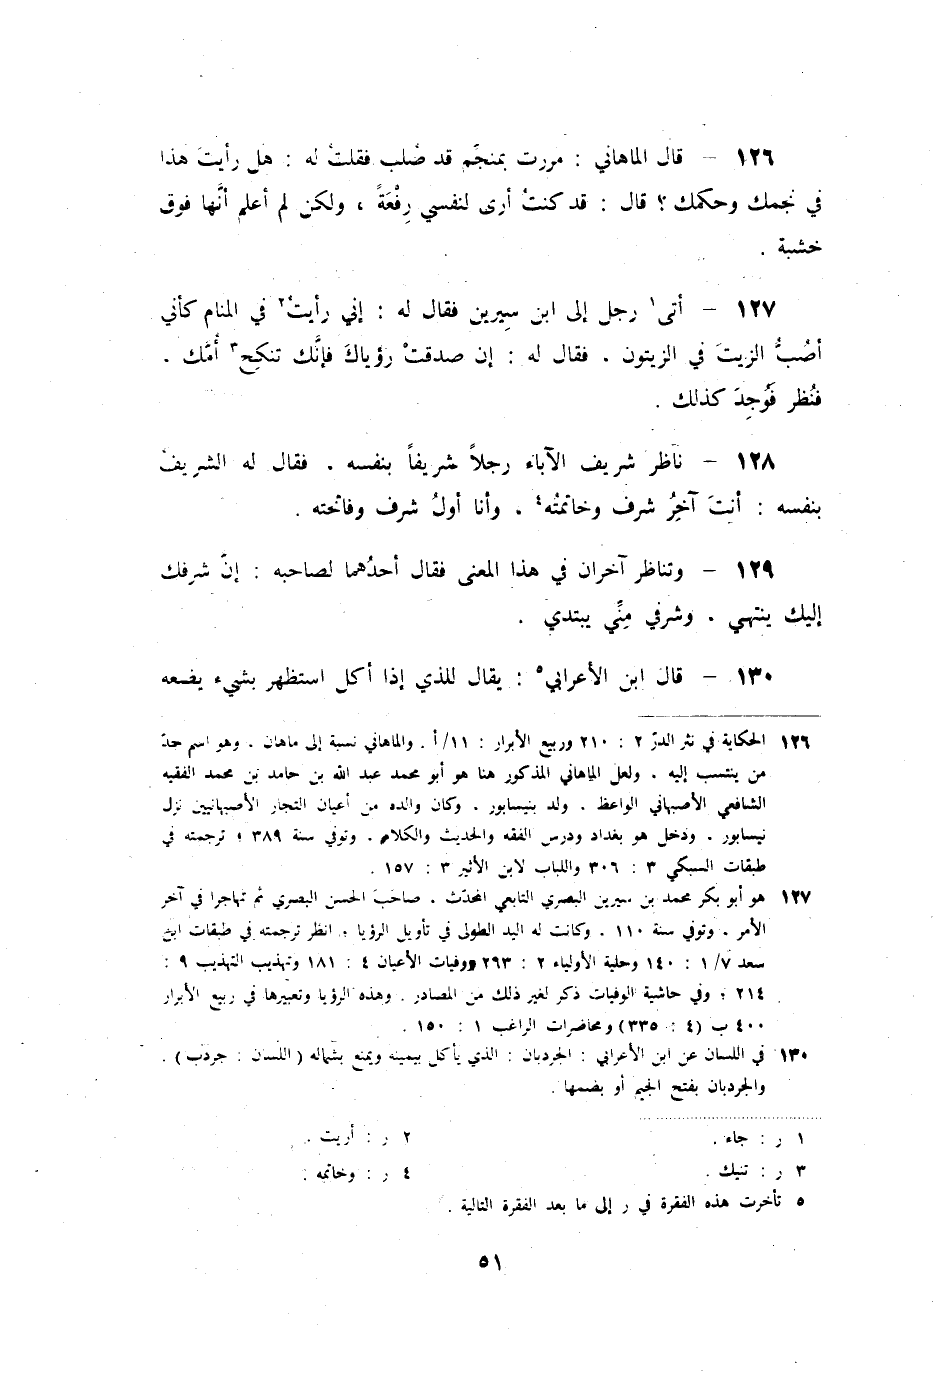 ١٢٦ – قال الماهاني : مررت بمنجّم قد صُلب فقلتُ له : هل رأيتَ هذا
في نجمك وحكمك ؟ قال : قد كنتُ أرى لنفسي رِفْعَةً ، ولكن لم أعلم أنَّها فوق
خشبة .
١٢٧ – أتى١ رجل إلى ابن سيرين فقال له : إني رأيتُ٢ في المنام كأني
أصُبُّ الزيتَ في الزيتون . فقال له : إن صدقتْ رؤياكَ فإنَّك تنكِح٣ أُمَّك .
فنُظر فَوُجِدَ كذلك .
١٢٨ – ناظر شريف الآباء رجلاً شريفاً بنفسه . فقال له الشريفُ
بنفسه : أنتَ آخِرُ شرف وخاتمتُه٤ . وأنا أولُ شرف وفاتحته .
١٢٩ – وتناظر آخران في هذا المعنى فقال أحدُهما لصاحبه : إنّ شرفك
إليك ينتهي . وشرفي مِنِّي يبتدي .
١٣٠ – قال ابن الأعرابي٥ : يقال للذي إذا أكل استظهر بشيء يضعه
١٢٦ الحكاية في نثر الدرّ ٢ : ٢١٠ وربيع الأبرار : ١١/أ . والماهاني نسبة إلى ماهان . وهو اسم جدّ
من ينتسب إليه . ولعل الماهاني المذكور هنا هو أبو محمد عبد الله بن حامد بن محمد الفقيه
الشافعي الأصبهاني الواعظ . ولد بنيسابور . وكان والده من أعيان التجار الأصبهانيين نزل
نيسابور . ودخل هو بغداد ودرس الفقه والحديث والكلام . وتوفي سنة ٣٨٩ ؛ ترجمته في
طبقات السبكي ٣ : ٣٠٦ واللباب لابن الأثير ٣ : ١٥٧ .
١٢٧ هو أبو بكر محمد بن سيرين البصري التابعي المحدّث . صاحبَ الحسن البصري ثم تهاجرا في آخر
الأمر . وتوفي سنة ١١٠ . وكانت له اليد الطولى في تأويل الرؤيا ؛ انظر ترجمته في طبقات ابن
سعد ٧/ ١ : ١٤٠ وحلية الأولياء ٢ : ٢٦٣ ووفيات الأعيان ٤ : ١٨١ وتهذيب التهذيب ٩ :
٢١٤ ؛ وفي حاشية الوفيات ذكر لغير ذلك من المصادر . وهذه الرؤيا وتعبيرها في ربيع الأبرار
٤٠٠ ب (٤ : ٣٣٥) ومحاضرات الراغب ١ : ١٥٠ .
١٣٠ في اللسان عن ابن الأعرابي : الجردبان : الذي يأكل بيمينه ويمنع بشماله ( اللسان : جردب ) .
والجردبان بفتح الجيم أو بضمها .
١ ر : جاء . ٢ ر : أريت .
٣ ر : تنيك . ٤ ر : وخاتمه .
٥ تأخرت هذه الفقرة في ر إلى ما بعد الفقرة التالية .
٥١